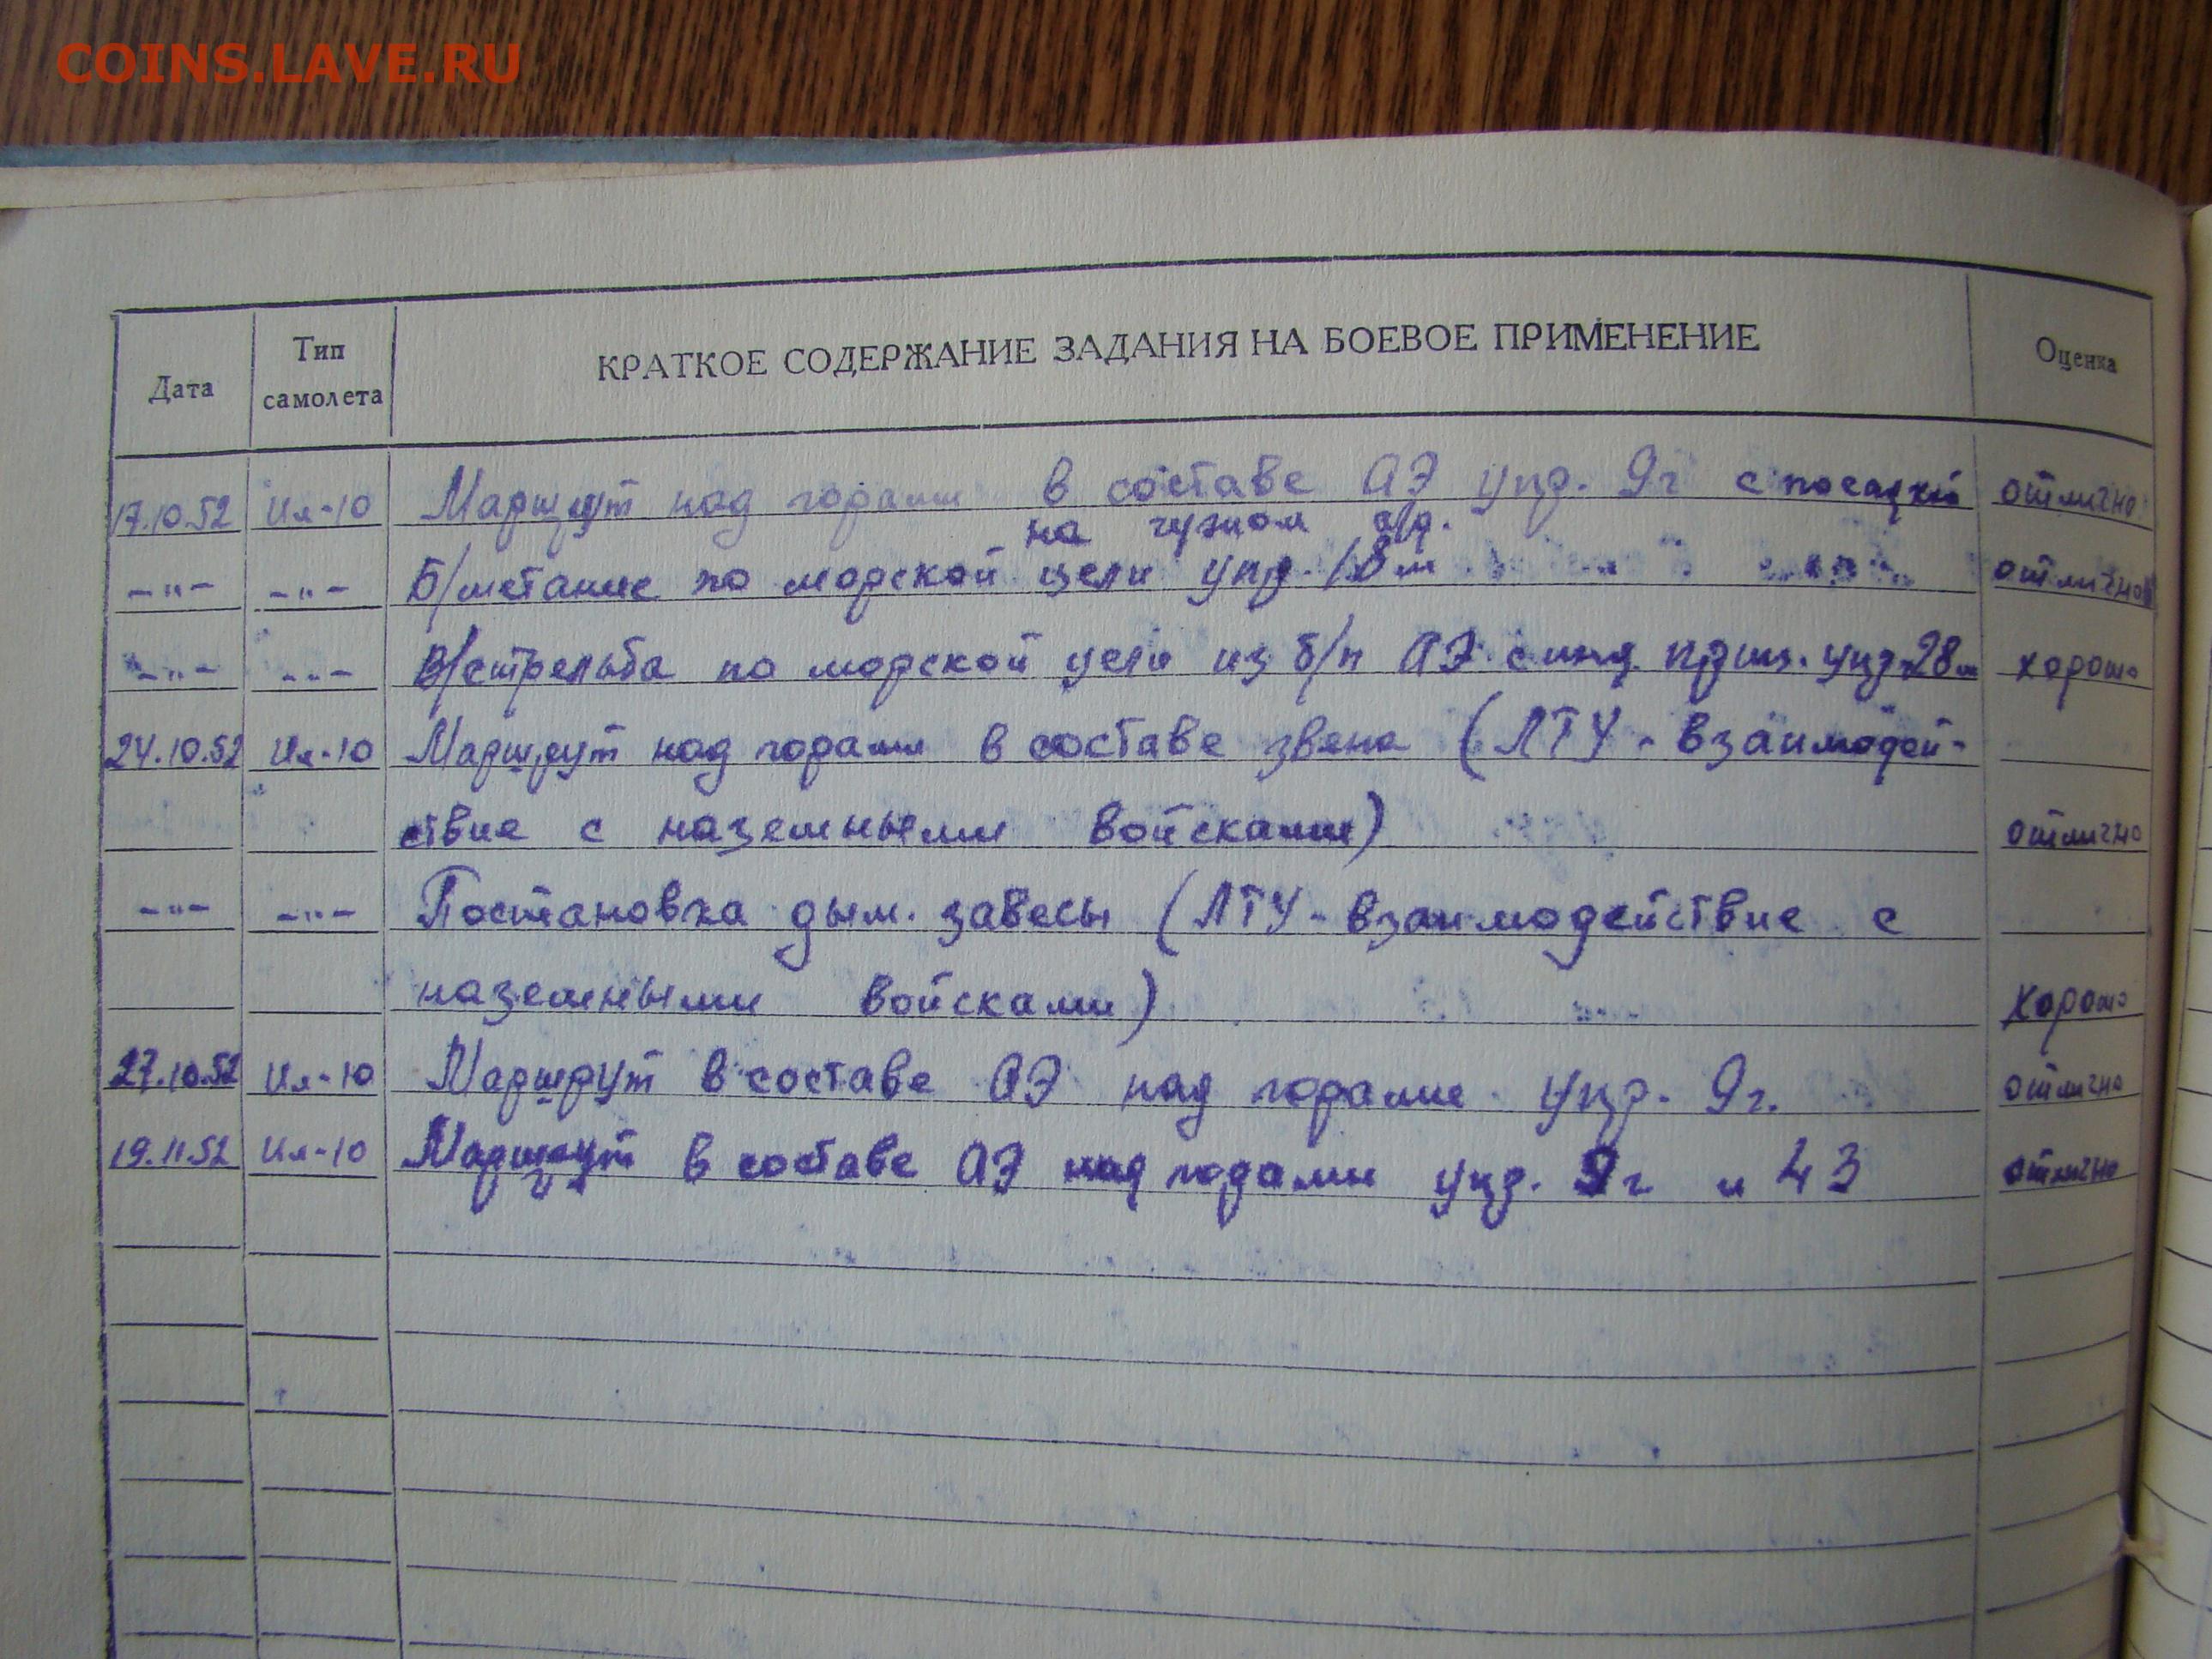 COINS.LAVE.RU
Дата Тип самолета КРАТКОЕ СОДЕРЖАНИЕ ЗАДАНИЯ НА БОЕВОЕ ПРИМЕНЕНИЕ Оценка
17.10.52 Ил-10 Маршрут над горами в составе АЭ упр. 9г с посадкой отлично
на чужом а/д.
-"- -"- Б/метание по морской цели упр. 18м отлично
-"- -"- В/стрельба по морской цели из б/п АЭ с инд. приц. упр. 28м хорошо
24.10.52 Ил-10 Маршрут над горами в составе звена (ЛТУ - взаимодей-
ствие с наземными войсками) отлично
-"- -"- Постановка дым. завесы (ЛТУ - взаимодействие с
наземными войсками) хорошо
27.10.52 Ил-10 Маршрут в составе АЭ над горами упр. 9г. отлично
19.11.52 Ил-10 Маршрут в составе АЭ над горами упр. 9г и 43 отлично